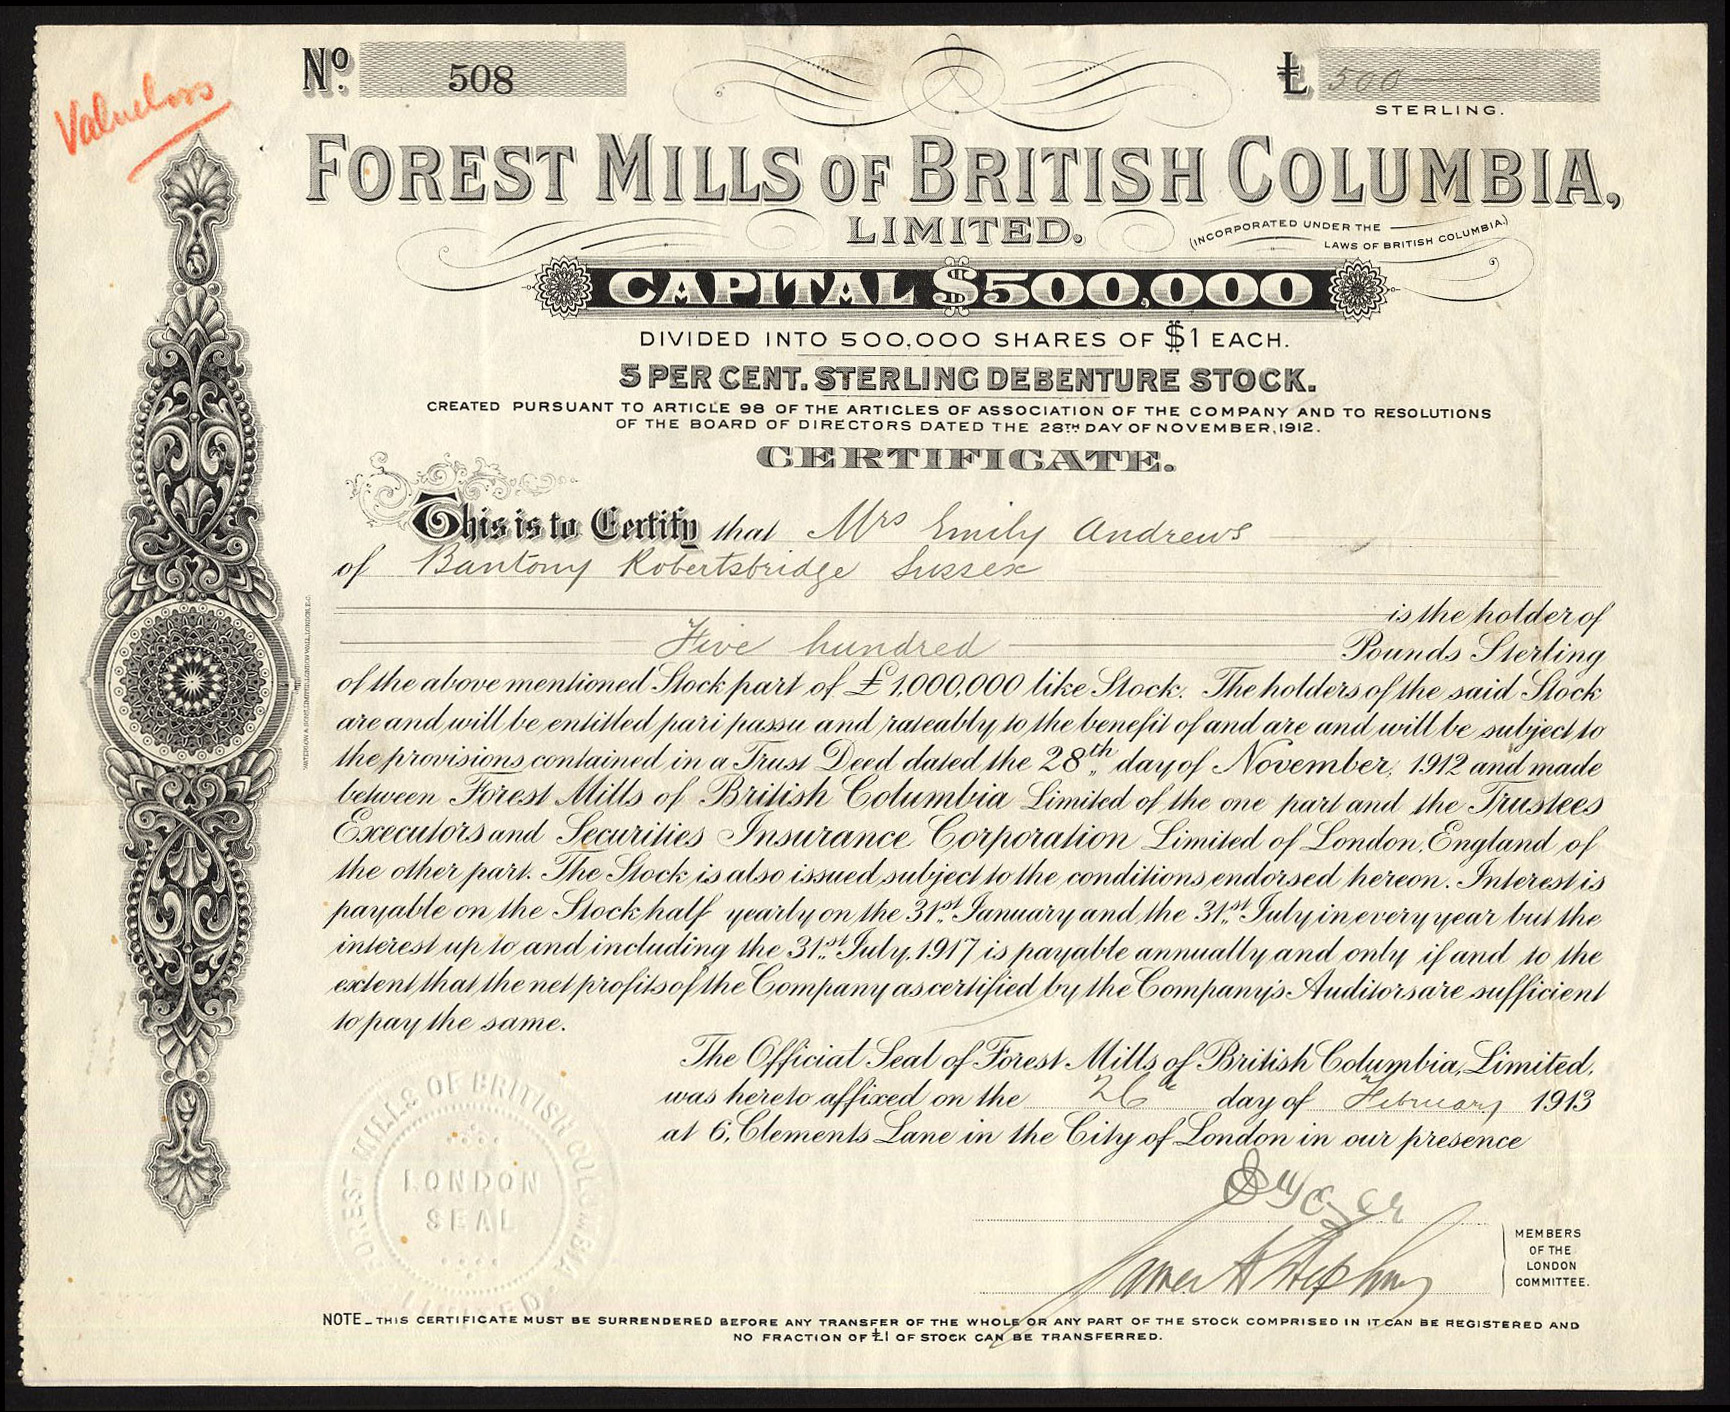 Valueless
Nº. 508
£ 500
STERLING.
FOREST MILLS OF BRITISH COLUMBIA,
LIMITED.
(INCORPORATED UNDER THE
LAWS OF BRITISH COLUMBIA.)
CAPITAL $500,000
DIVIDED INTO 500,000 SHARES OF $1 EACH.
5 PER CENT. STERLING DEBENTURE STOCK.
CREATED PURSUANT TO ARTICLE 98 OF THE ARTICLES OF ASSOCIATION OF THE COMPANY AND TO RESOLUTIONS
OF THE BOARD OF DIRECTORS DATED THE 28TH DAY OF NOVEMBER, 1912.
CERTIFICATE.
This is to Certify that Mrs Emily Andrews
of Bantony Robertsbridge Sussex
is the holder of
Five hundred Pounds Sterling
of the above mentioned Stock part of £1,000,000 like Stock. The holders of the said Stock
are and will be entitled pari passu and rateably to the benefit of and are and will be subject to
the provisions contained in a Trust Deed dated the 28th day of November, 1912 and made
between Forest Mills of British Columbia Limited of the one part and the Trustees
Executors and Securities Insurance Corporation Limited of London, England of
the other part. The Stock is also issued subject to the conditions endorsed hereon. Interest is
payable on the Stock half yearly on the 31st January and the 31st July in every year but the
interest up to and including the 31st July, 1917 is payable annually and only if and to the
extent that the net profits of the Company as certified by the Company's Auditors are sufficient
to pay the same.
The Official Seal of Forest Mills of British Columbia, Limited,
was hereto affixed on the 26th day of February 1913
at 6, Clements Lane in the City of London in our presence
MEMBERS
OF THE
LONDON
COMMITTEE.
FOREST MILLS OF BRITISH COLUMBIA
LIMITED
LONDON
SEAL
NOTE_THIS CERTIFICATE MUST BE SURRENDERED BEFORE ANY TRANSFER OF THE WHOLE OR ANY PART OF THE STOCK COMPRISED IN IT CAN BE REGISTERED AND
NO FRACTION OF £1 OF STOCK CAN BE TRANSFERRED.